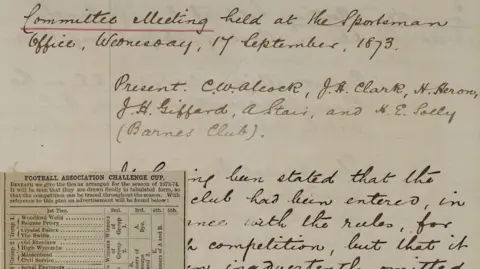 Committee Meeting held at the Sportsman
Office, Wednesday, 17 September, 1873.
Present. C.W. Alcock, J.H. Clark, H. Heron,
J.H. Giffard, A Stair, and H.E. Solly
(Barnes Club).
been stated that the
club had been entered, in
with the rules, for
competition, but that it
inadvertently omitted
FOOTBALL ASSOCIATION CHALLENGE CUP.
we give the ties as arranged for the season of 1873-74.
It will be seen that they are drawn finally in tabulated form, so
that the competition can be traced throughout the season. With
reference to this plan an advertisement will be found below:
1st Ties. 2nd. 3rd. 4th. 5th.
Woodford Wells
Reigate Priory
Crystal Palace
The Swifts
Old Etonians
High Wycombe
Maidenhead
Civil Service
Royal Engineers